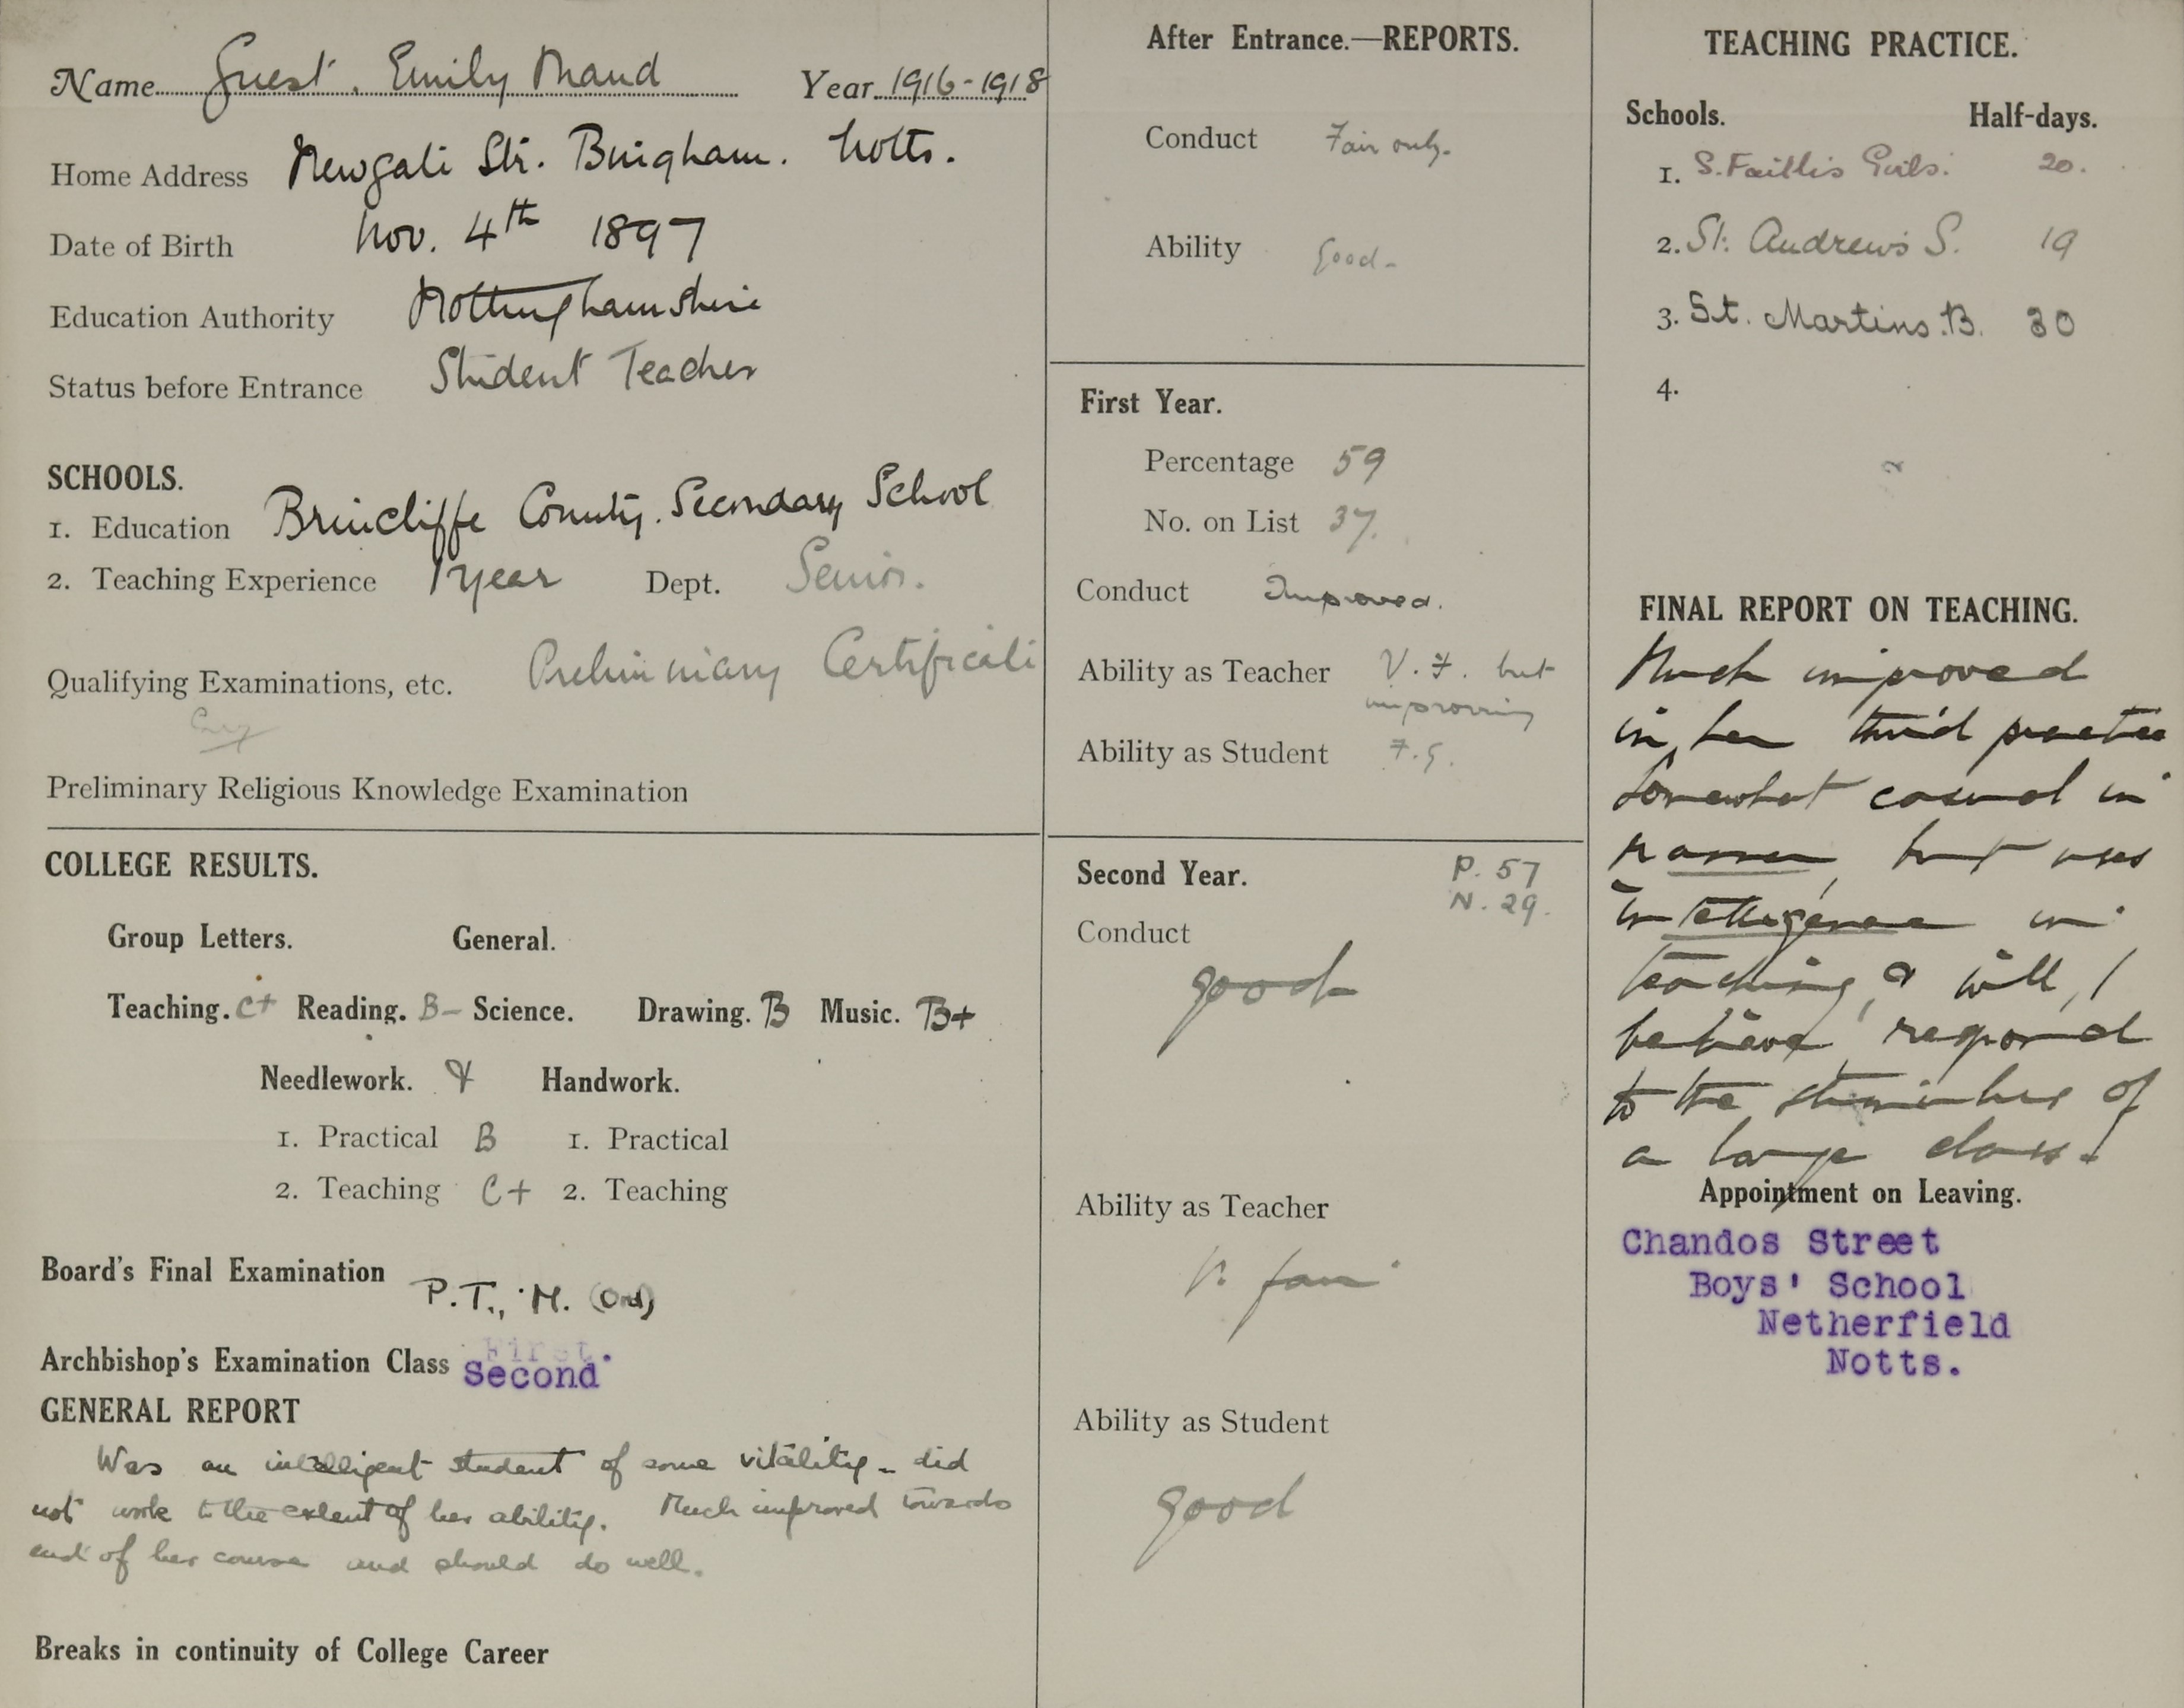 Name Guest. Emily Maud Year 1916-1918
Home Address Newgate Str. Bingham. Notts.
Date of Birth Nov. 4th 1897
Education Authority Nottinghamshire
Status before Entrance Student Teacher
SCHOOLS.
1. Education Brincliffe County. Secondary School
2. Teaching Experience 1 year Dept. Senior.
Qualifying Examinations, etc. Preliminary Certificate
Preliminary Religious Knowledge Examination
COLLEGE RESULTS.
Group Letters. General.
Teaching. C+ Reading. B- Science. Drawing. B Music. B+
Needlework. Handwork.
1. Practical B 1. Practical
2. Teaching C+ 2. Teaching
Board's Final Examination P.T., M. (Ord)
Archbishop's Examination Class First. Second
GENERAL REPORT
Was an intelligent student of some vitality - did
not work to the extent of her ability. Much improved towards
end of her course and should do well.
Breaks in continuity of College Career
After Entrance.—REPORTS.
Conduct Fair only.
Ability Good-
First Year.
Percentage 59
No. on List 37.
Conduct Improved.
Ability as Teacher V.F. but
improving
Ability as Student F.G.
Second Year. P. 57
N. 29.
Conduct
good
Ability as Teacher
V. fair
Ability as Student
good
TEACHING PRACTICE.
Schools. Half-days.
1. S. Faith's Girls. 20.
2. St. Andrew's S. 19
3. St. Martins. B. 30
4.
FINAL REPORT ON TEACHING.
Much improved
in her third practice
Somewhat casual in
manner, but uses
intelligence in
teaching, & will, I
believe, respond
to the stimulus of
a large class.
Appointment on Leaving.
Chandos Street
Boys' School
Netherfield
Notts.